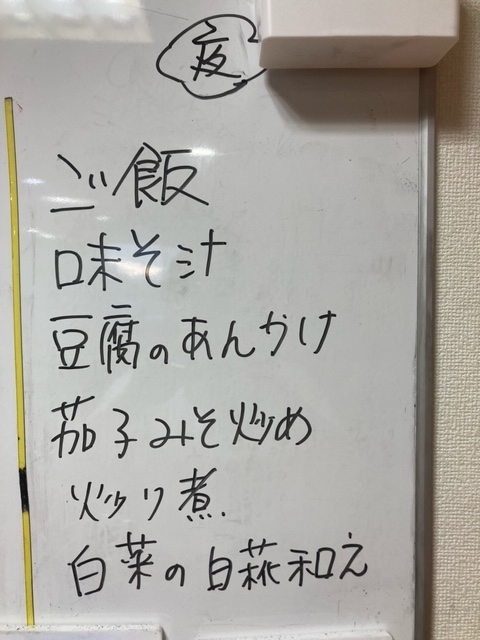 夜
ご飯
味そ汁
豆腐のあんかけ
茄子みそ炒め
炒り煮
白菜の白菰和え